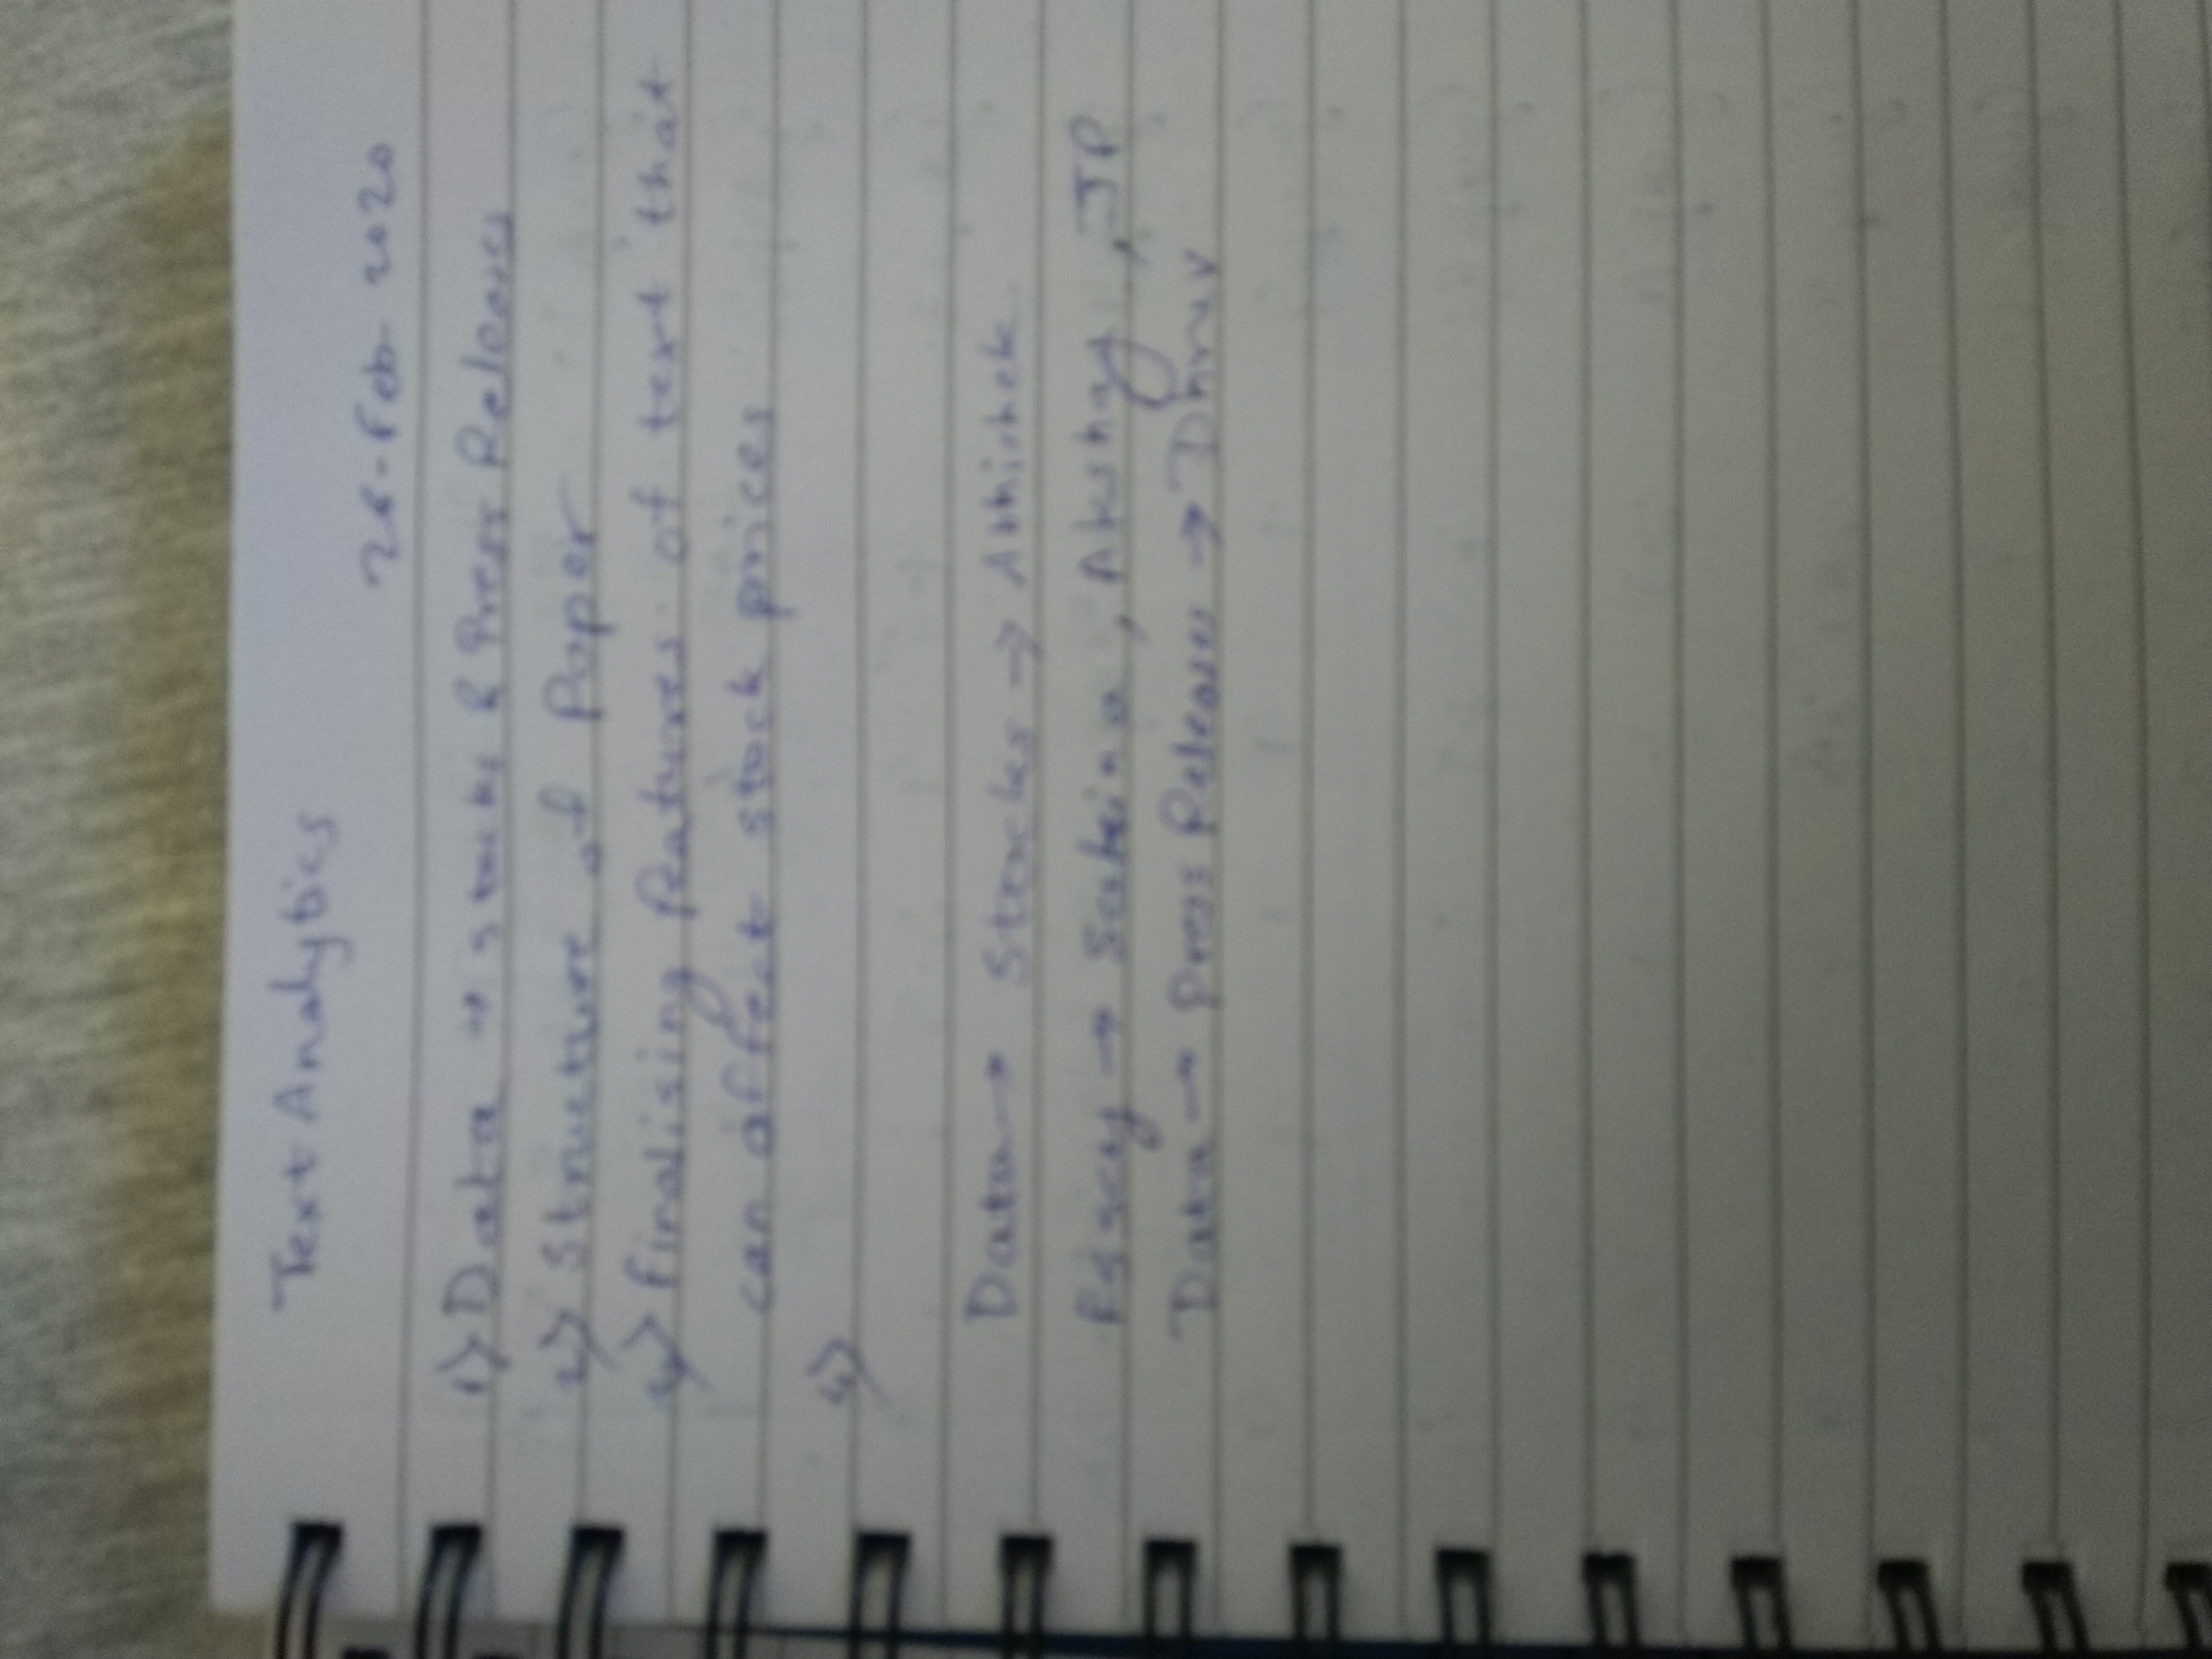 Text Analytics
26-Feb-2020
1) Data → stocks & Press Releases
2) Structure of Paper
4) finalising features of text that
can affect stock prices
5)
Data → Stocks → Abhishek
Essay → Sakina, Akshay, JP
Data → Press Releases → Dhruv